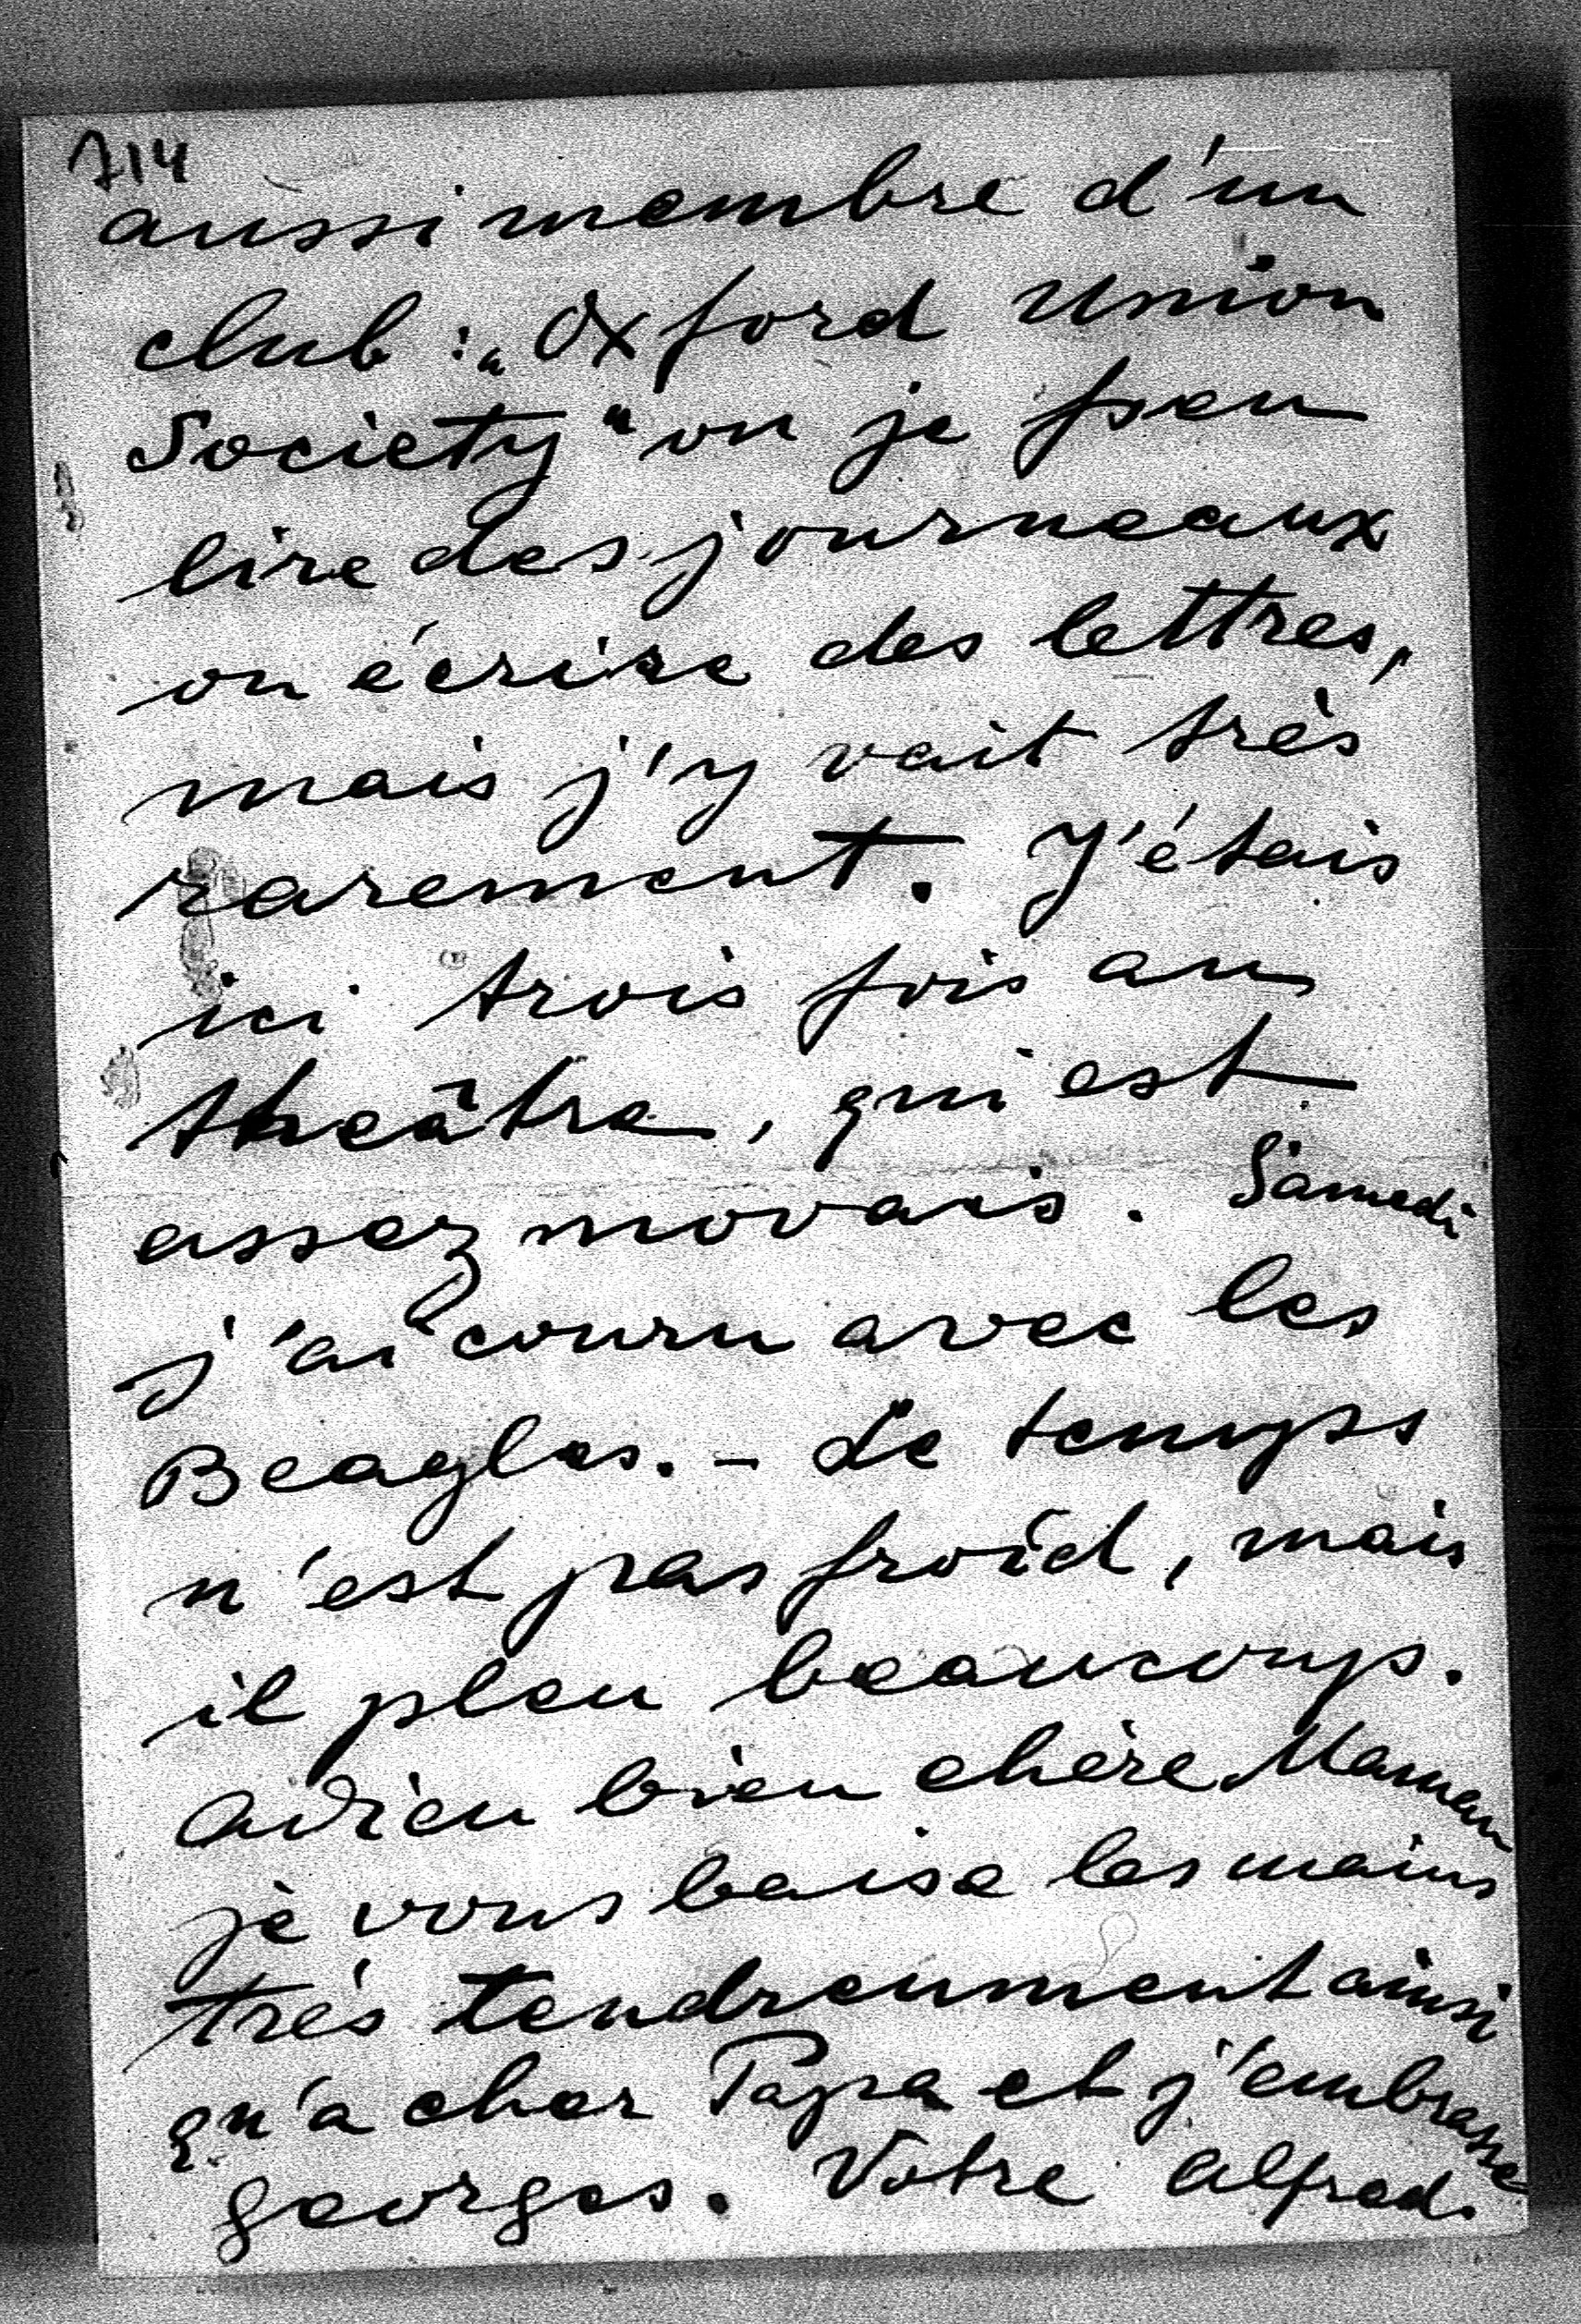 714
aussi membre d'un
club : „Oxford Union
Society" ou je peu
lire des journeaux
ou écrire des lettres,
mais j'y vait très
rarement. J'étais
ici trois fois au
theâtre, qui est
assez movais. Samedi
j'ai couru avec les
Beagles. - Le temps
n'est pas froid, mais
il pleu beaucoup.
Adieu bien chère Maman
je vous baise les mains
très tendreument ainsi
qu'a cher Papa et j'embrasse
Georges. Votre Alfred.